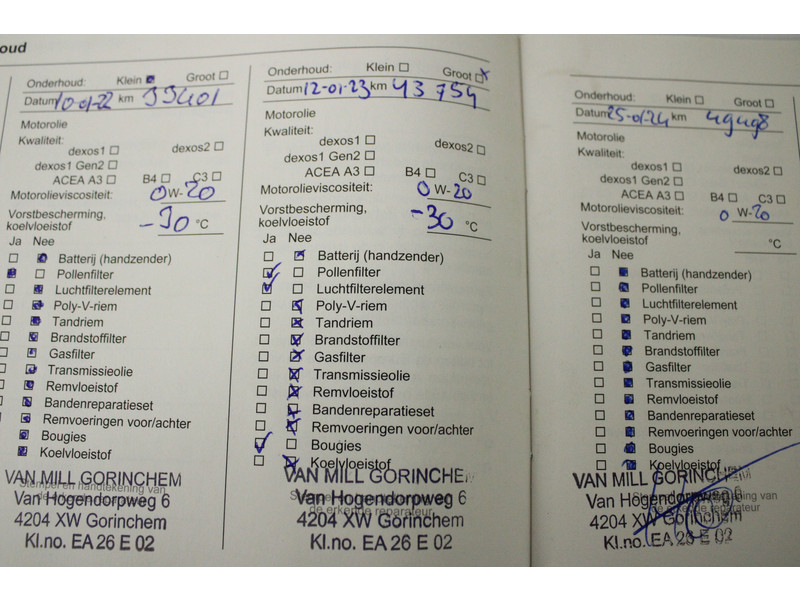 oud
Onderhoud: Klein Groot
Datum 10-01-22 km 33401
Motorolie
Kwaliteit:
dexos1 dexos2
dexos1 Gen2
ACEA A3 B4 C3
Motorolieviscositeit: 0 W-20
Vorstbescherming,
koelvloeistof -30 °C
Ja Nee
Batterij (handzender)
Pollenfilter
Luchtfilterelement
Poly-V-riem
Tandriem
Brandstoffilter
Gasfilter
Transmissieolie
Remvloeistof
Bandenreparatieset
Remvoeringen voor/achter
Bougies
Koelvloeistof
VAN MILL GORINCHEM
Stempel en handtekening van
Van Hogendorpweg 6
4204 XW Gorinchem
Kl.no. EA 26 E 02
Onderhoud: Klein Groot
Datum 12-01-23 km 43754
Motorolie
Kwaliteit:
dexos1 dexos2
dexos1 Gen2
ACEA A3 B4 C3
Motorolieviscositeit: 0 W-20
Vorstbescherming,
koelvloeistof -30 °C
Ja Nee
Batterij (handzender)
Pollenfilter
Luchtfilterelement
Poly-V-riem
Tandriem
Brandstoffilter
Gasfilter
Transmissieolie
Remvloeistof
Bandenreparatieset
Remvoeringen voor/achter
Bougies
Koelvloeistof
VAN MILL GORINCHEM
Van Hogendorpweg 6
de erkende reparateur
4204 XW Gorinchem
Kl.no. EA 26 E 02
Onderhoud: Klein Groot
Datum 25-01-24 km
Motorolie
Kwaliteit:
dexos1 dexos2
dexos1 Gen2
ACEA A3 B4 C3
Motorolieviscositeit: 0 W-20
Vorstbescherming,
koelvloeistof °C
Ja Nee
Batterij (handzender)
Pollenfilter
Luchtfilterelement
Poly-V-riem
Tandriem
Brandstoffilter
Gasfilter
Transmissieolie
Remvloeistof
Bandenreparatieset
Remvoeringen voor/achter
Bougies
Koelvloeistof
VAN MILL GORINCHEM
Van Hogendorpweg 6
de erkende reparateur
4204 XW Gorinchem
Kl.no. EA 26 E 02